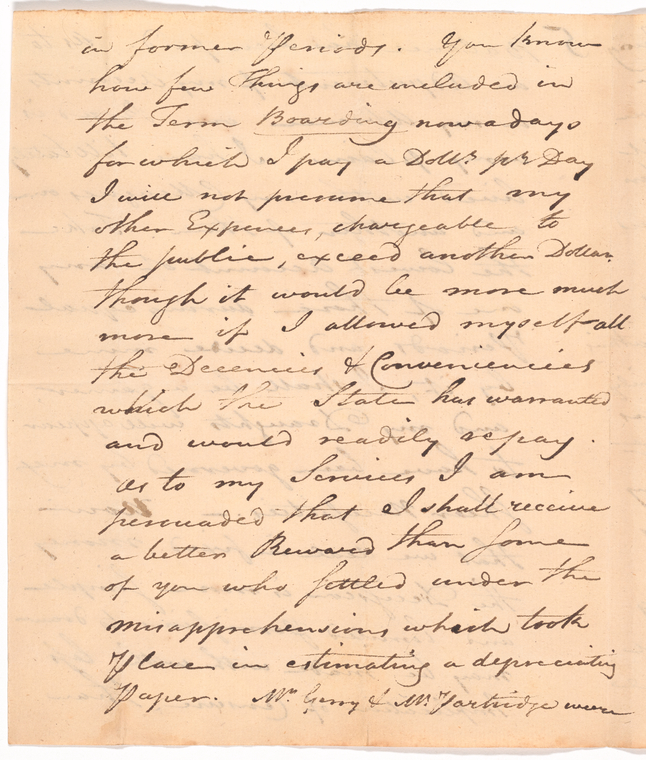 in former Periods. You know
how few Things are included in
the Term Boarding nowadays
for which I pay a Dollr. pr Day
I will not presume that my
other Expences, chargeable to
the public, exceed another Dollar.
though it would be more much
more if I allowed myself all
the Decencies & Conveniencies
which the State has warranted
and would readily repay.
As to my Services I am
persuaded that I shall receive
a better Reward than some
of you who settled under the
misapprehensions which took
Place in estimating a depreciating
Paper. Mr. Gerry & Mr. Partridge were